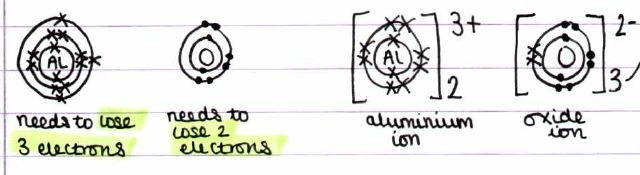 AL
AL
3+
2-
2
3
needs to lose
3 electrons
needs to
lose 2
electrons
aluminium
ion
oxide
ion